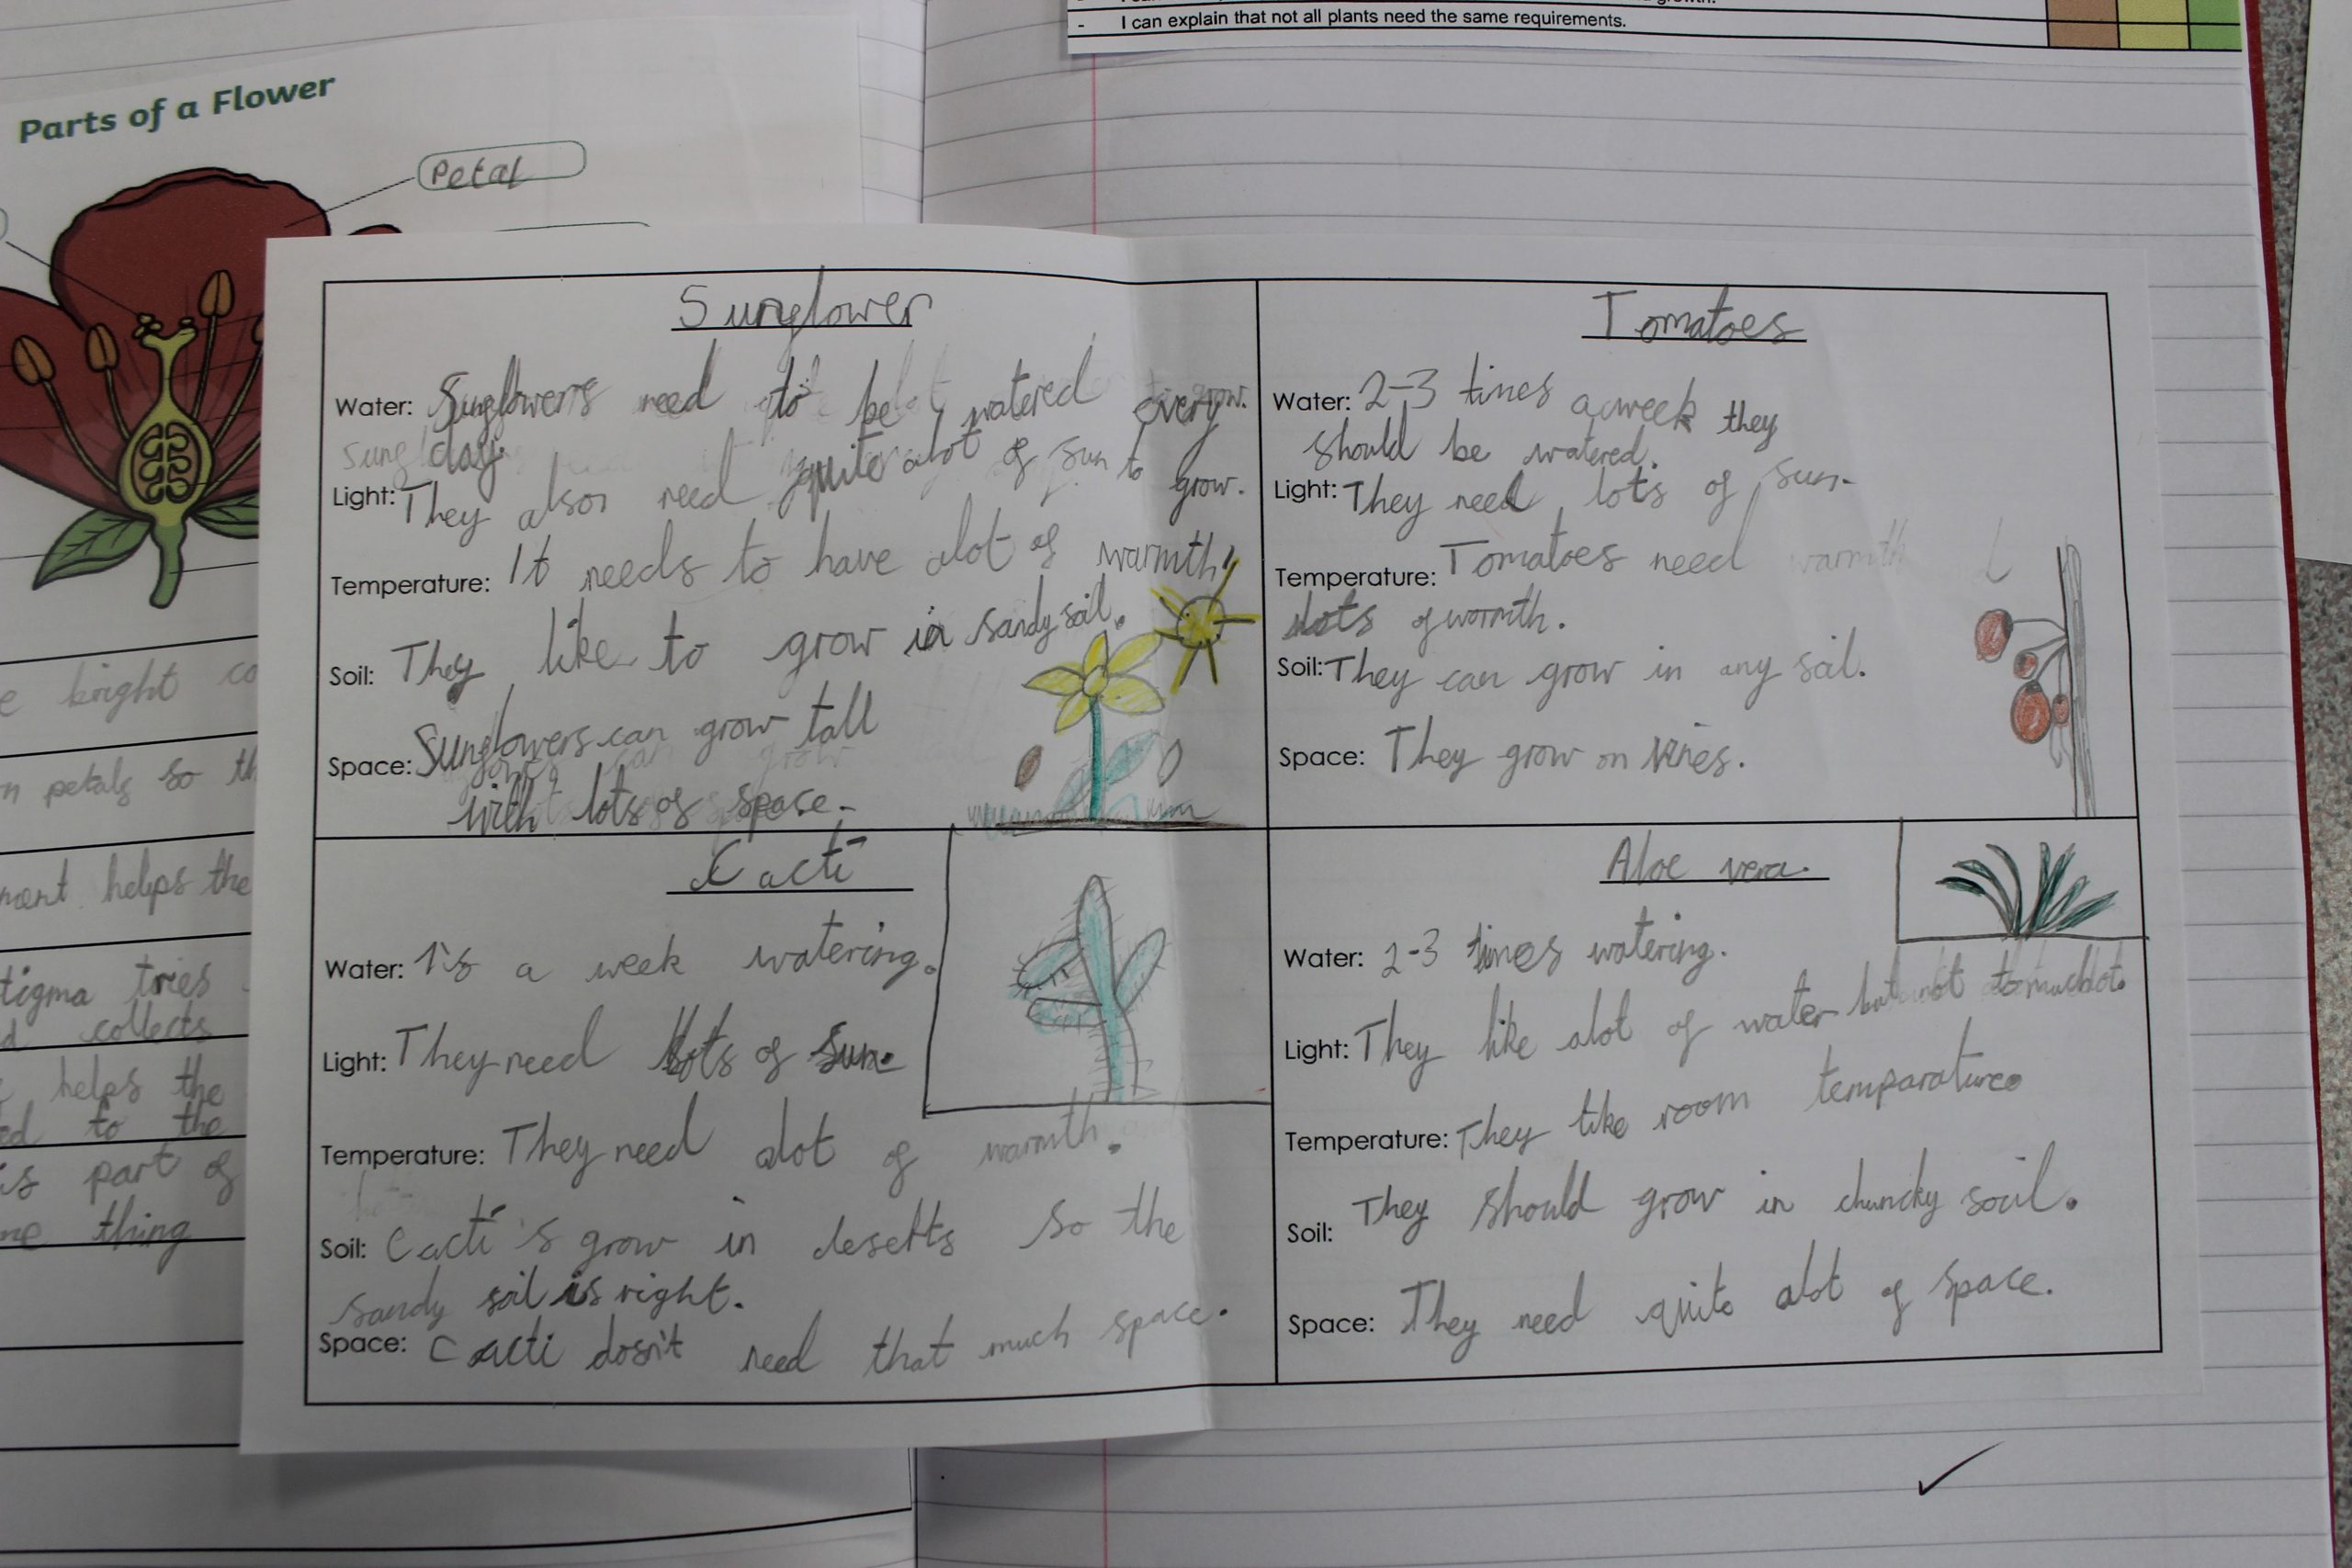 - I can explain that not all plants need the same requirements.
Parts of a Flower
Petal
Sunflower
Water: Sunflowers need to be watered every
day.
Light: They also need quite alot of sun to grow.
Temperature: It needs to have alot of warmth
Soil: They like to grow in sandy soil.
Space: Sunflowers can grow tall
with lots of space.
Tomatoes
Water: 2-3 times a week they
should be watered.
Light: They need lots of sun.
Temperature: Tomatoes need
lots of warmth.
Soil: They can grow in any soil.
Space: They grow on vines.
Cacti
Water: 1's a week watering.
Light: They need lots of sun.
Temperature: They need alot of warmth.
Soil: Cacti's grow in deserts so the
sandy soil is right.
Space: Cacti dosn't need that much space.
Aloe vera.
Water: 2-3 times watering.
Light: They like alot of water but not
Temperature: They like room temparature
Soil: They should grow in chuncky soil.
Space: They need quite alot of space.
bright co
petals so th
helps the
tigma tries
collects
helps the
to the
is part of
thing